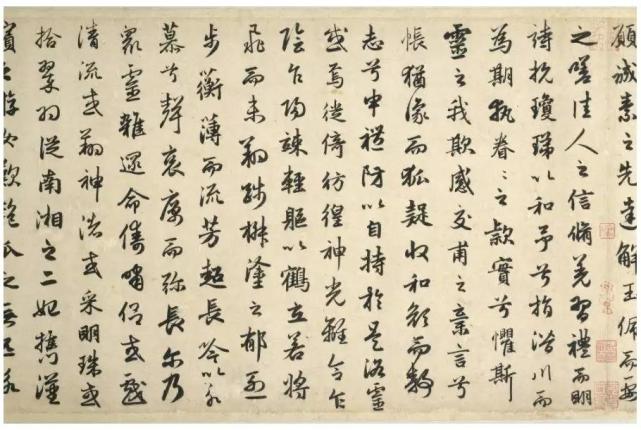 願誠素之先達解玉佩而要
之嗟佳人之信脩羌習禮而明
詩抗瓊珶以和予兮指潛川而
為期執眷〻之款實兮懼斯
靈之我欺感交甫之棄言兮
悵猶豫而狐疑收和顏而靜
志兮申禮防以自持於是洛靈
感焉徙倚彷徨神光離合乍
陰乍陽竦輕軀以鶴立若將
飛而未翔踐椒塗之郁烈
步蘅薄而流芳超長吟以永
慕兮聲哀厲而彌長爾乃
眾靈雜遝命儔嘯侶或戲
清流或翔神渚或采明珠或
拾翠羽從南湘之二妃攜漢
濱之游女歎匏瓜之無匹